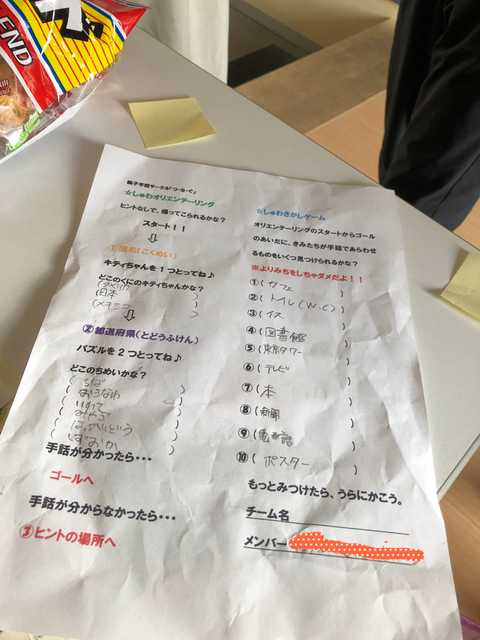 END
親子手話サークル「つ・な・ぐ」
☆しゅわオリエンテーリング
ヒントなしで、帰ってこられるかな?
スタート!!
⇩
①国名(こくめい)
キティちゃんを1つとってね♪
どこのくにのキティちゃんかな?
(アメリカ )
(日本 )
(メキシコ )
⇩
②都道府県(とどうふけん)
パズルを2つとってね♪
どこのちめいかな?
( )
( おきなわ )
( )
( )
( ほっかいどう )
( )
手話が分かったら・・・
ゴールへ
手話が分からなかったら・・・
③ヒントの場所へ
☆しゅわさがしゲーム
オリエンテーリングのスタートからゴール
のあいだに、きみたちが手話であらわせ
るものをいくつ見つけられるかな?
※よりみちをしちゃダメだよ!!
①( カフェ )
②( トイレ(W.C) )
③( イス )
④( 図書館 )
⑤( 東京タワー )
⑥( テレビ )
⑦( 本 )
⑧( 新聞 )
⑨( 電話 )
⑩( ポスター )
もっとみつけたら、うらにかこう。
チーム名
メンバー